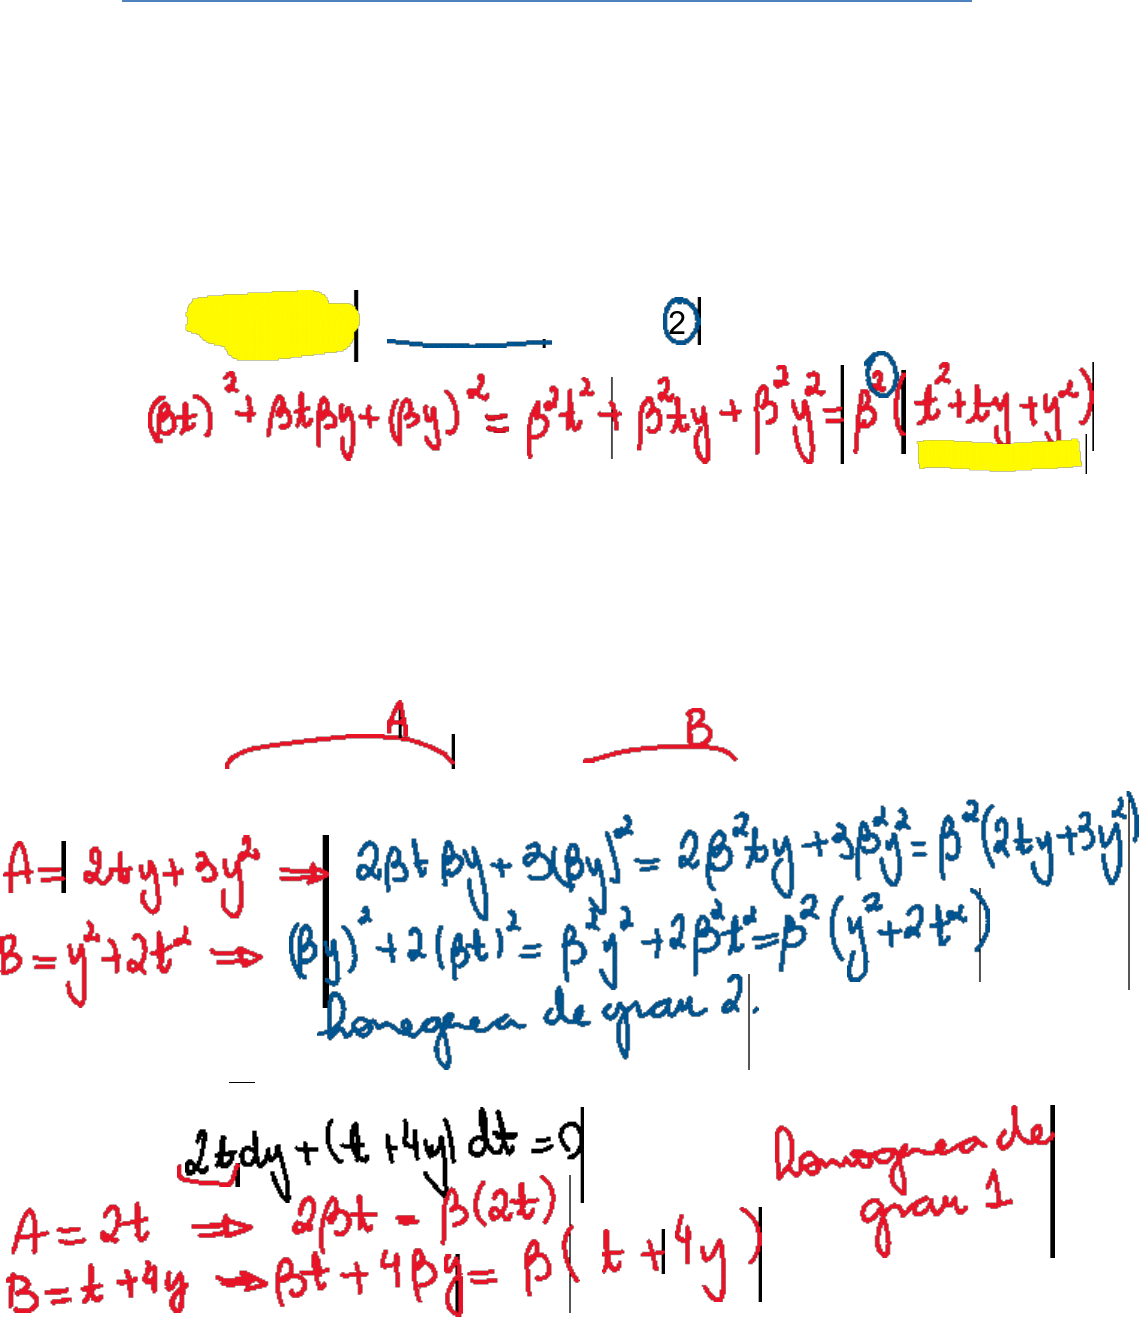 2
(βt)² + βtβy + (βy)² = β²t² + β²ty + β²y² = β²(t² + ty + y²)
A B
A = 2ty + 3y² ⇒ 2βtβy + 3(βy)² = 2β²ty + 3β²y² = β²(2ty + 3y²)
B = y² + 2t² ⇒ (βy)² + 2(βt)² = β²y² + 2β²t² = β²(y² + 2t²)
homegnea de grau 2.
2tdy + (t + 4y) dt = 0
homognea de
grau 1
A = 2t ⇒ 2βt - β(2t)
B = t + 4y → βt + 4βy = β(t + 4y)